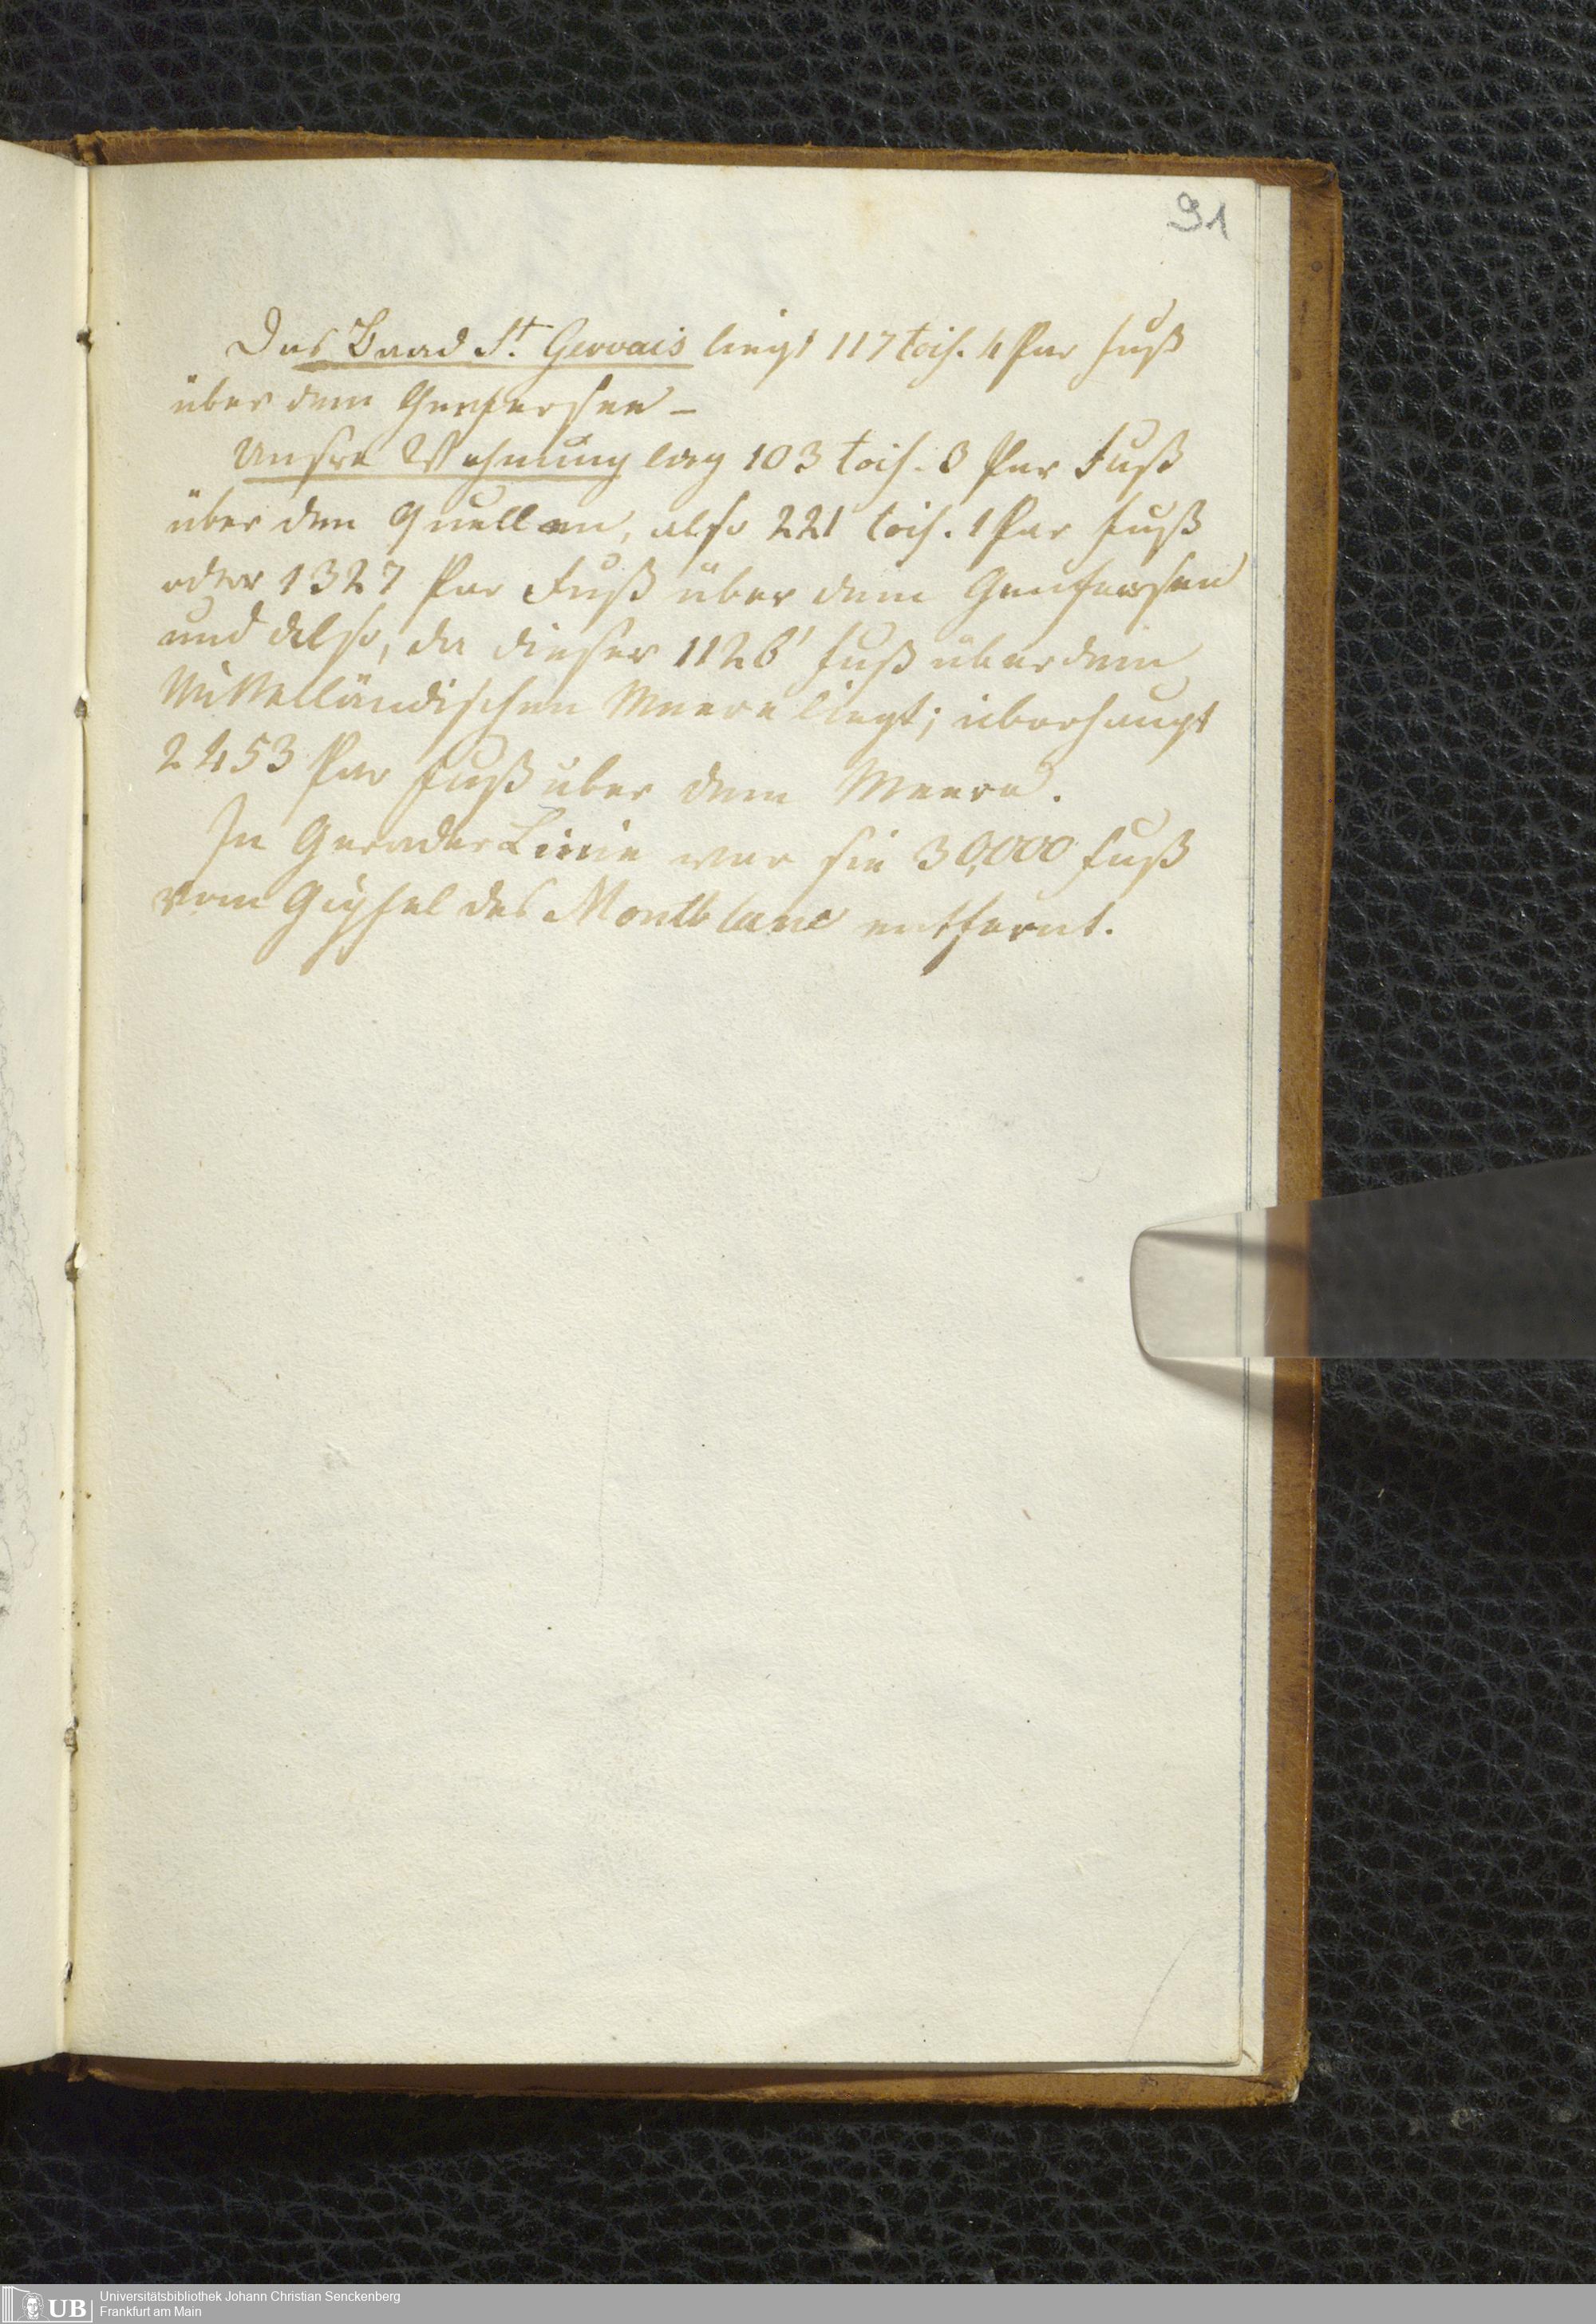 91
Das Baad St. Gervais liegt 117 tois. 4 Par Fuß
über dem Genfersee –
Unsre Wohnung lag 103 tois. 3 Par Fuß
über den Quellen, also 221 tois. 1 Par Fuß
oder 1327 Par Fuß über dem Genfersee
und also, da dieser 1126' Fuß über dem
Mittelländischen Meere liegt; überhaupt
2453 Par Fuß über dem Meere.
In Gerader Linie war sie 30,000 Fuß
vom Gipfel des Montblanc entfernt.
UB Universitätsbibliothek Johann Christian Senckenberg
Frankfurt am Main